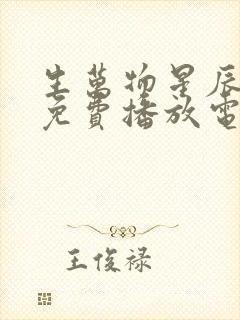 生萬物星辰
免費播放電
王俊禄